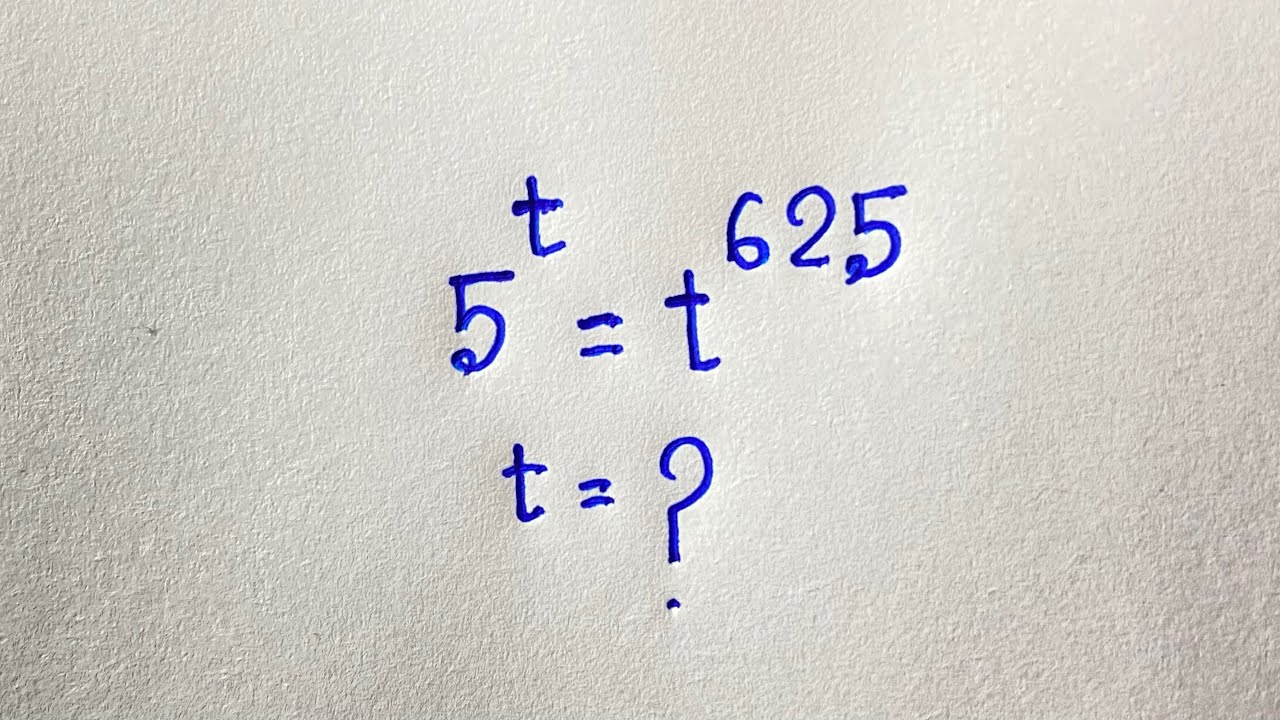 5^t = t^625
t = ?